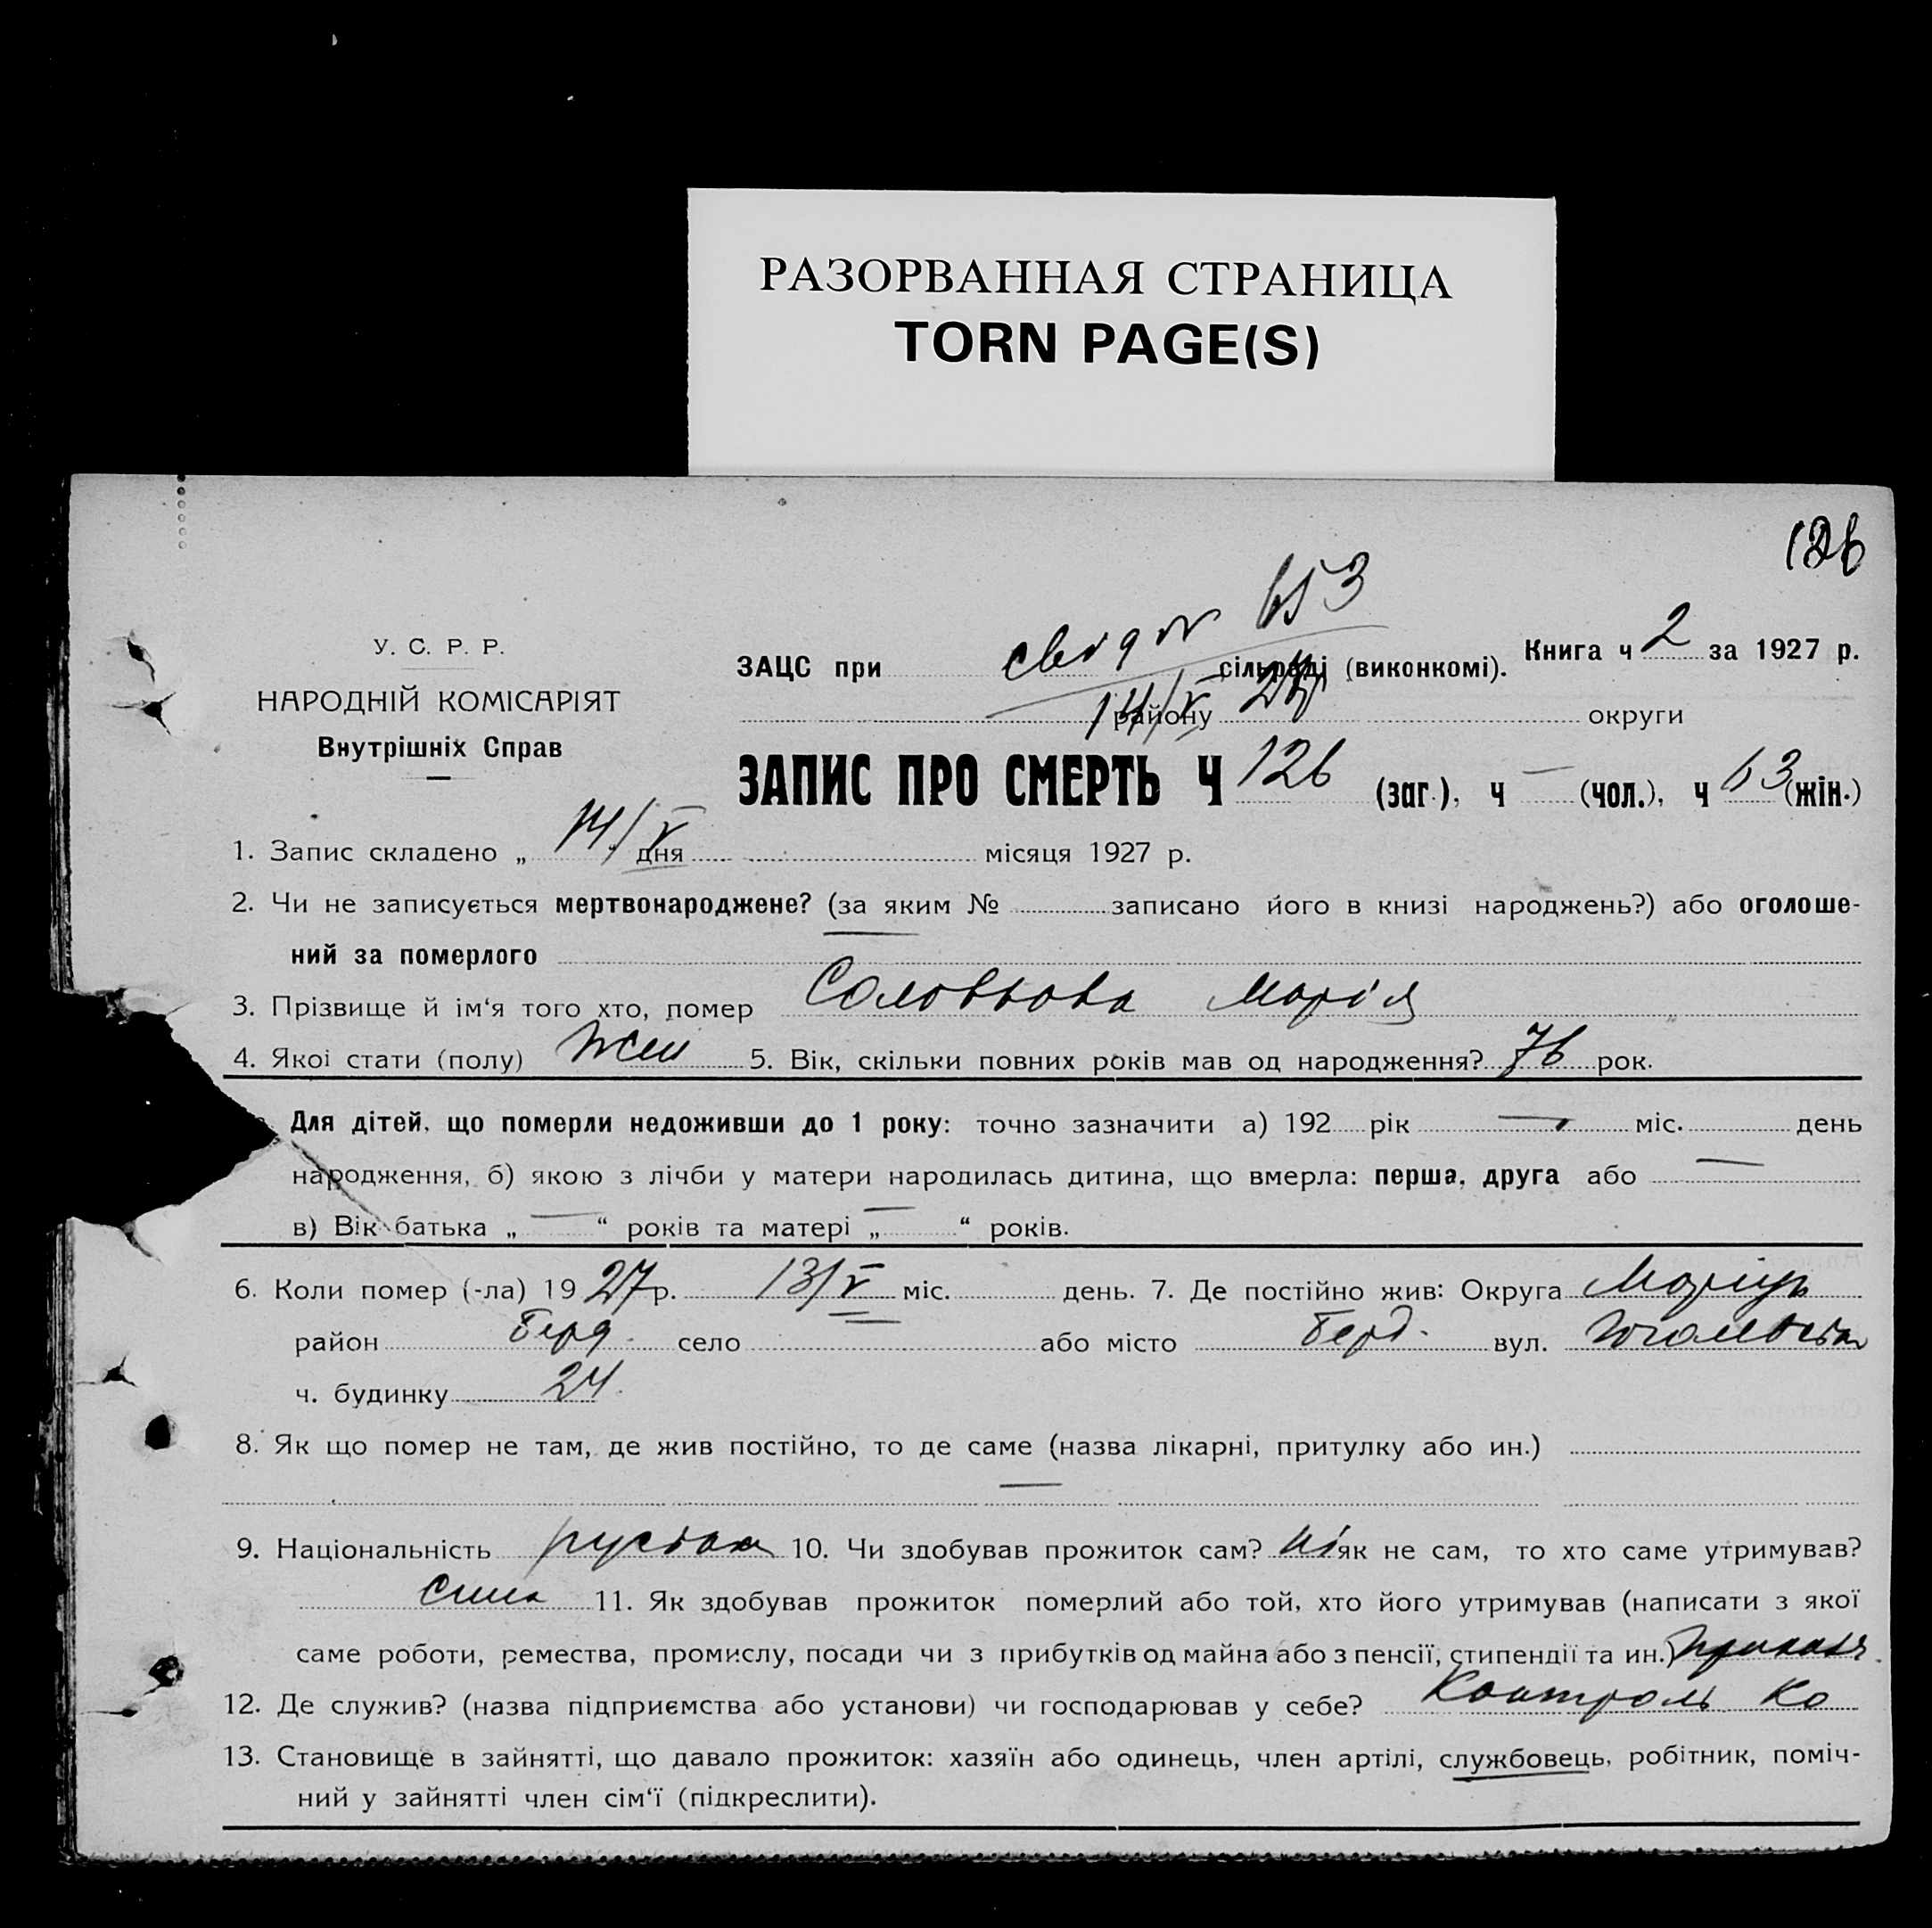 РАЗОРВАННАЯ СТРАНИЦА
TORN PAGE(S)
126
653
У. С. Р. Р.
НАРОДНІЙ КОМІСАРІЯТ
Внутрішніх Справ
ЗАЦС при сільраді (виконкомі). Книга ч 2 за 1927 р.
14/V 27 району округи
ЗАПИС ПРО СМЕРТЬ Ч 126 (заг.), ч — (чол.), ч 63 (жін.)
1. Запис складено „ 14/V дня місяця 1927 р.
2. Чи не записується мертвонароджене? (за яким № записано його в книзі народжень?) або оголоше-
ний за померлого
3. Прізвище й ім‘я того хто, помер Соловьова Марія
4. Якої стати (полу) Жен 5. Вік, скільки повних років мав од народження? 76 рок.
Для дітей, що померли недоживши до 1 року: точно зазначити а) 192 рік — міс. день
народження, б) якою з лічби у матери народилась дитина, що вмерла: перша, друга або —
в) Вік батька „ — “ років та матері „ — “ років.
6. Коли помер (-ла) 19 27 р. 13/V міс. день. 7. Де постійно жив: Округа Маріуп
район Берд. село або місто Берд. вул.
ч. будинку 24.
8. Як що помер не там, де жив постійно, то де саме (назва лікарні, притулку або ин.)
—
9. Національність руская 10. Чи здобував прожиток сам? ні як не сам, то хто саме утримував?
сина 11. Як здобував прожиток померлий або той, хто його утримував (написати з якої
саме роботи, ремества, промислу, посади чи з прибутків од майна або з пенсії, стипендії та ин.)
12. Де служив? (назва підприємства або установи) чи господарював у себе? Контроль Ко
13. Становище в зайнятті, що давало прожиток: хазяїн або одинець, член артілі, службовець, робітник, поміч-
ний у зайнятті член сім‘ї (підкреслити).